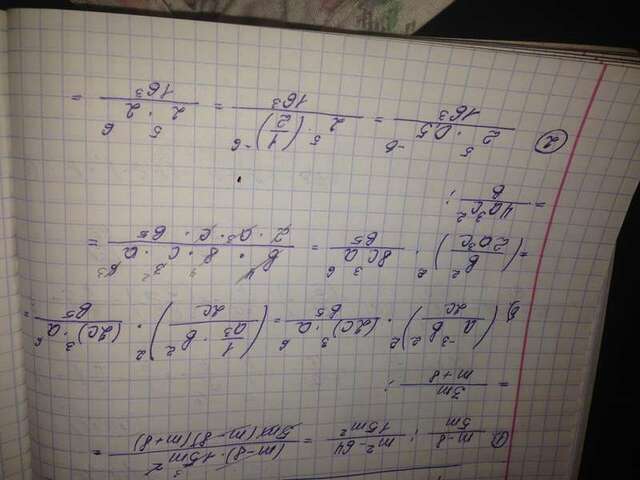 а) (m-8)/(5m) : (m²-64)/(15m²) = ((m-8)·15m²)/(5m(m-8)(m+8)) =
= 3m/(m+8) ;
б) ((a⁻³b²)/(2c))² · ((2c)³·a⁶)/b⁵ = ((1/a³ · b²)/(2c))² · ((2c)³·a⁶)/b⁵ =
= (b²/(2a³c))² · (8c³a⁶)/b⁵ = (b⁴·8·c³·a⁶)/(2·a³·c·b⁵) =
= (4a³c²)/b ;
② (2⁵·0,5⁻⁶)/16³ = (2⁵·(1/2)⁻⁶)/16³ = (2⁵·2⁶)/16³ =